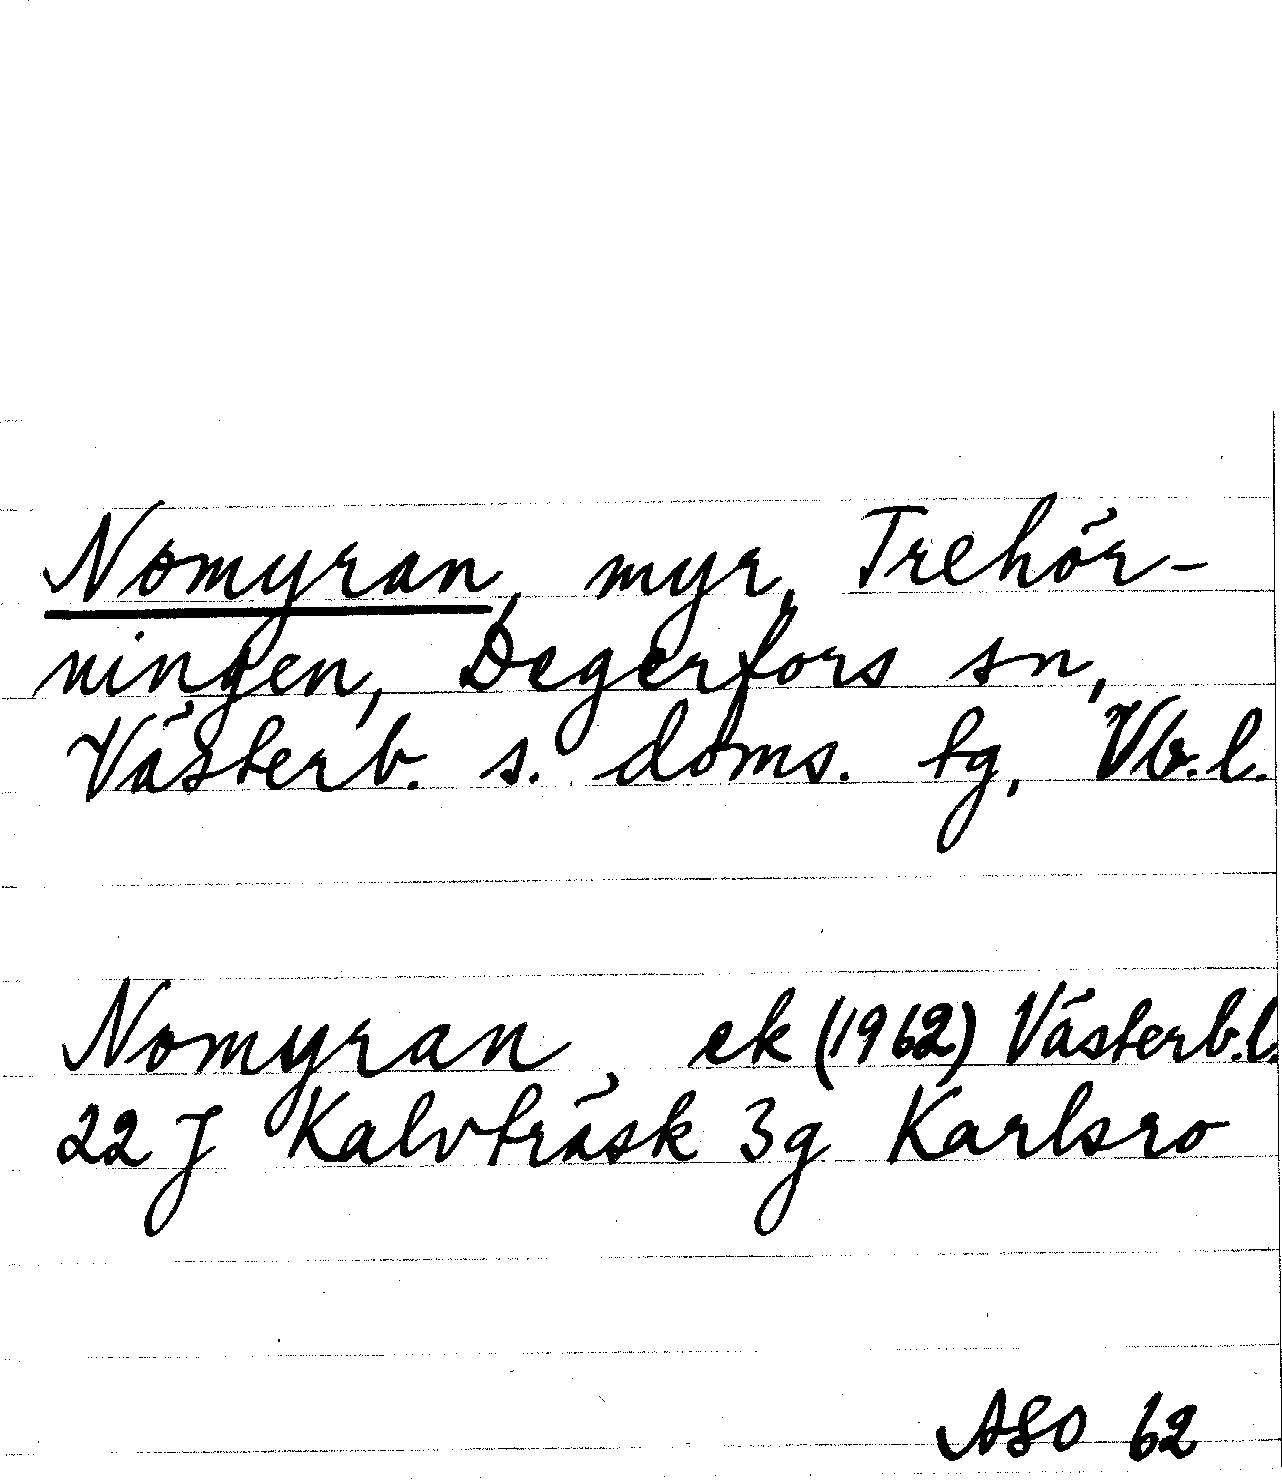 Nomyran, myr, Trehör-
ningen, Degerfors sn,
Västerb. s. doms. tg, Vb.l.
Nomyran ek (1962) Västerb.l.
22 J Kalvträsk 3g Karlsro
ASO 62